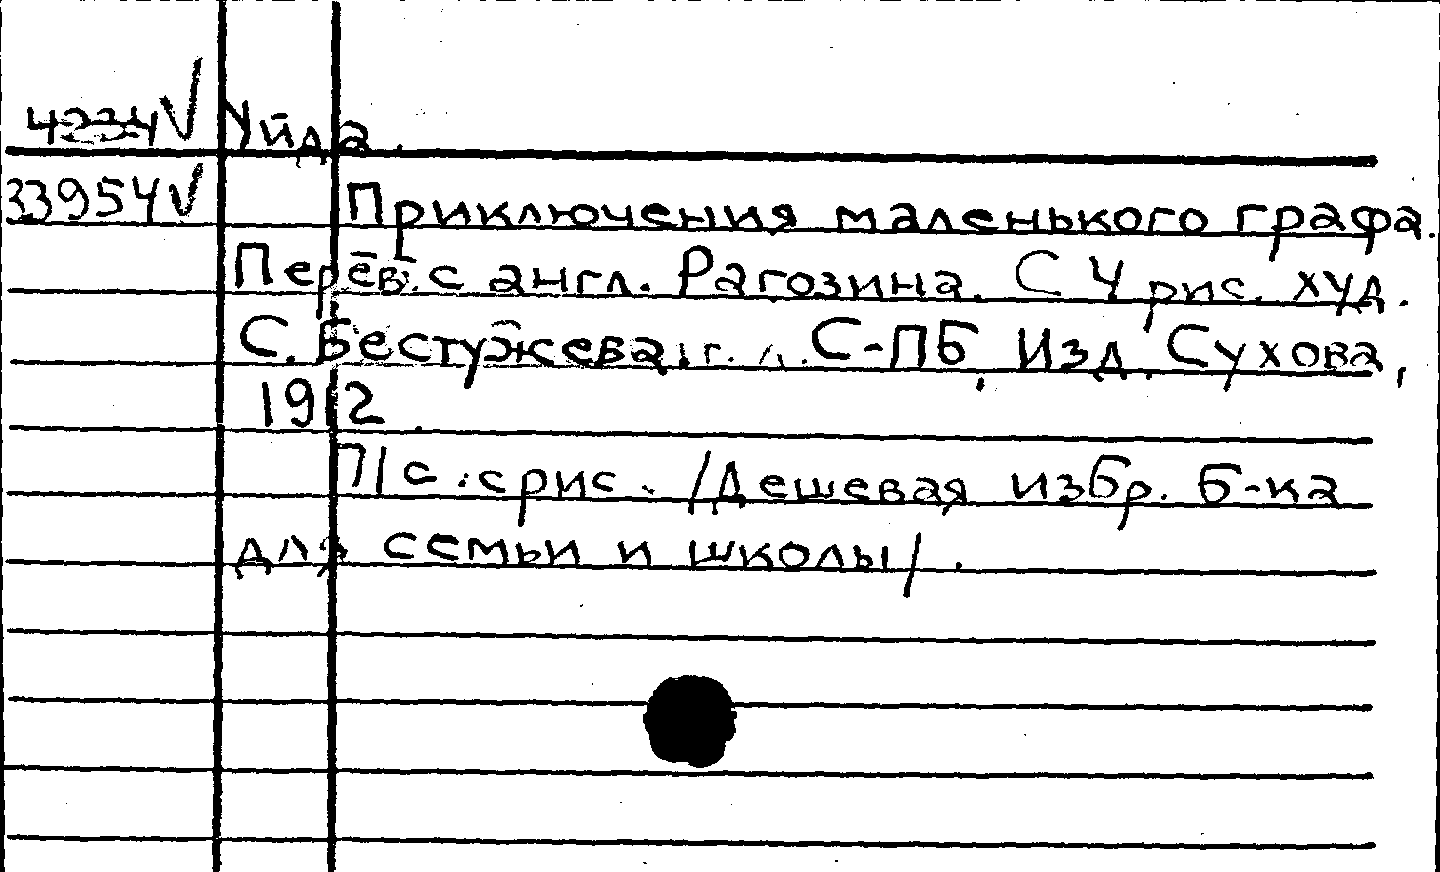 4234 √ Уйда.
33954 √ Приключения маленького графа.
Перев. с англ. Рагозина. С 4 рис. худ.
С. Бестужева. С-ПБ, Изд. Сухова,
1912.
71 с. с рис. /Дешевая избр. б-ка
для семьи и школы/.